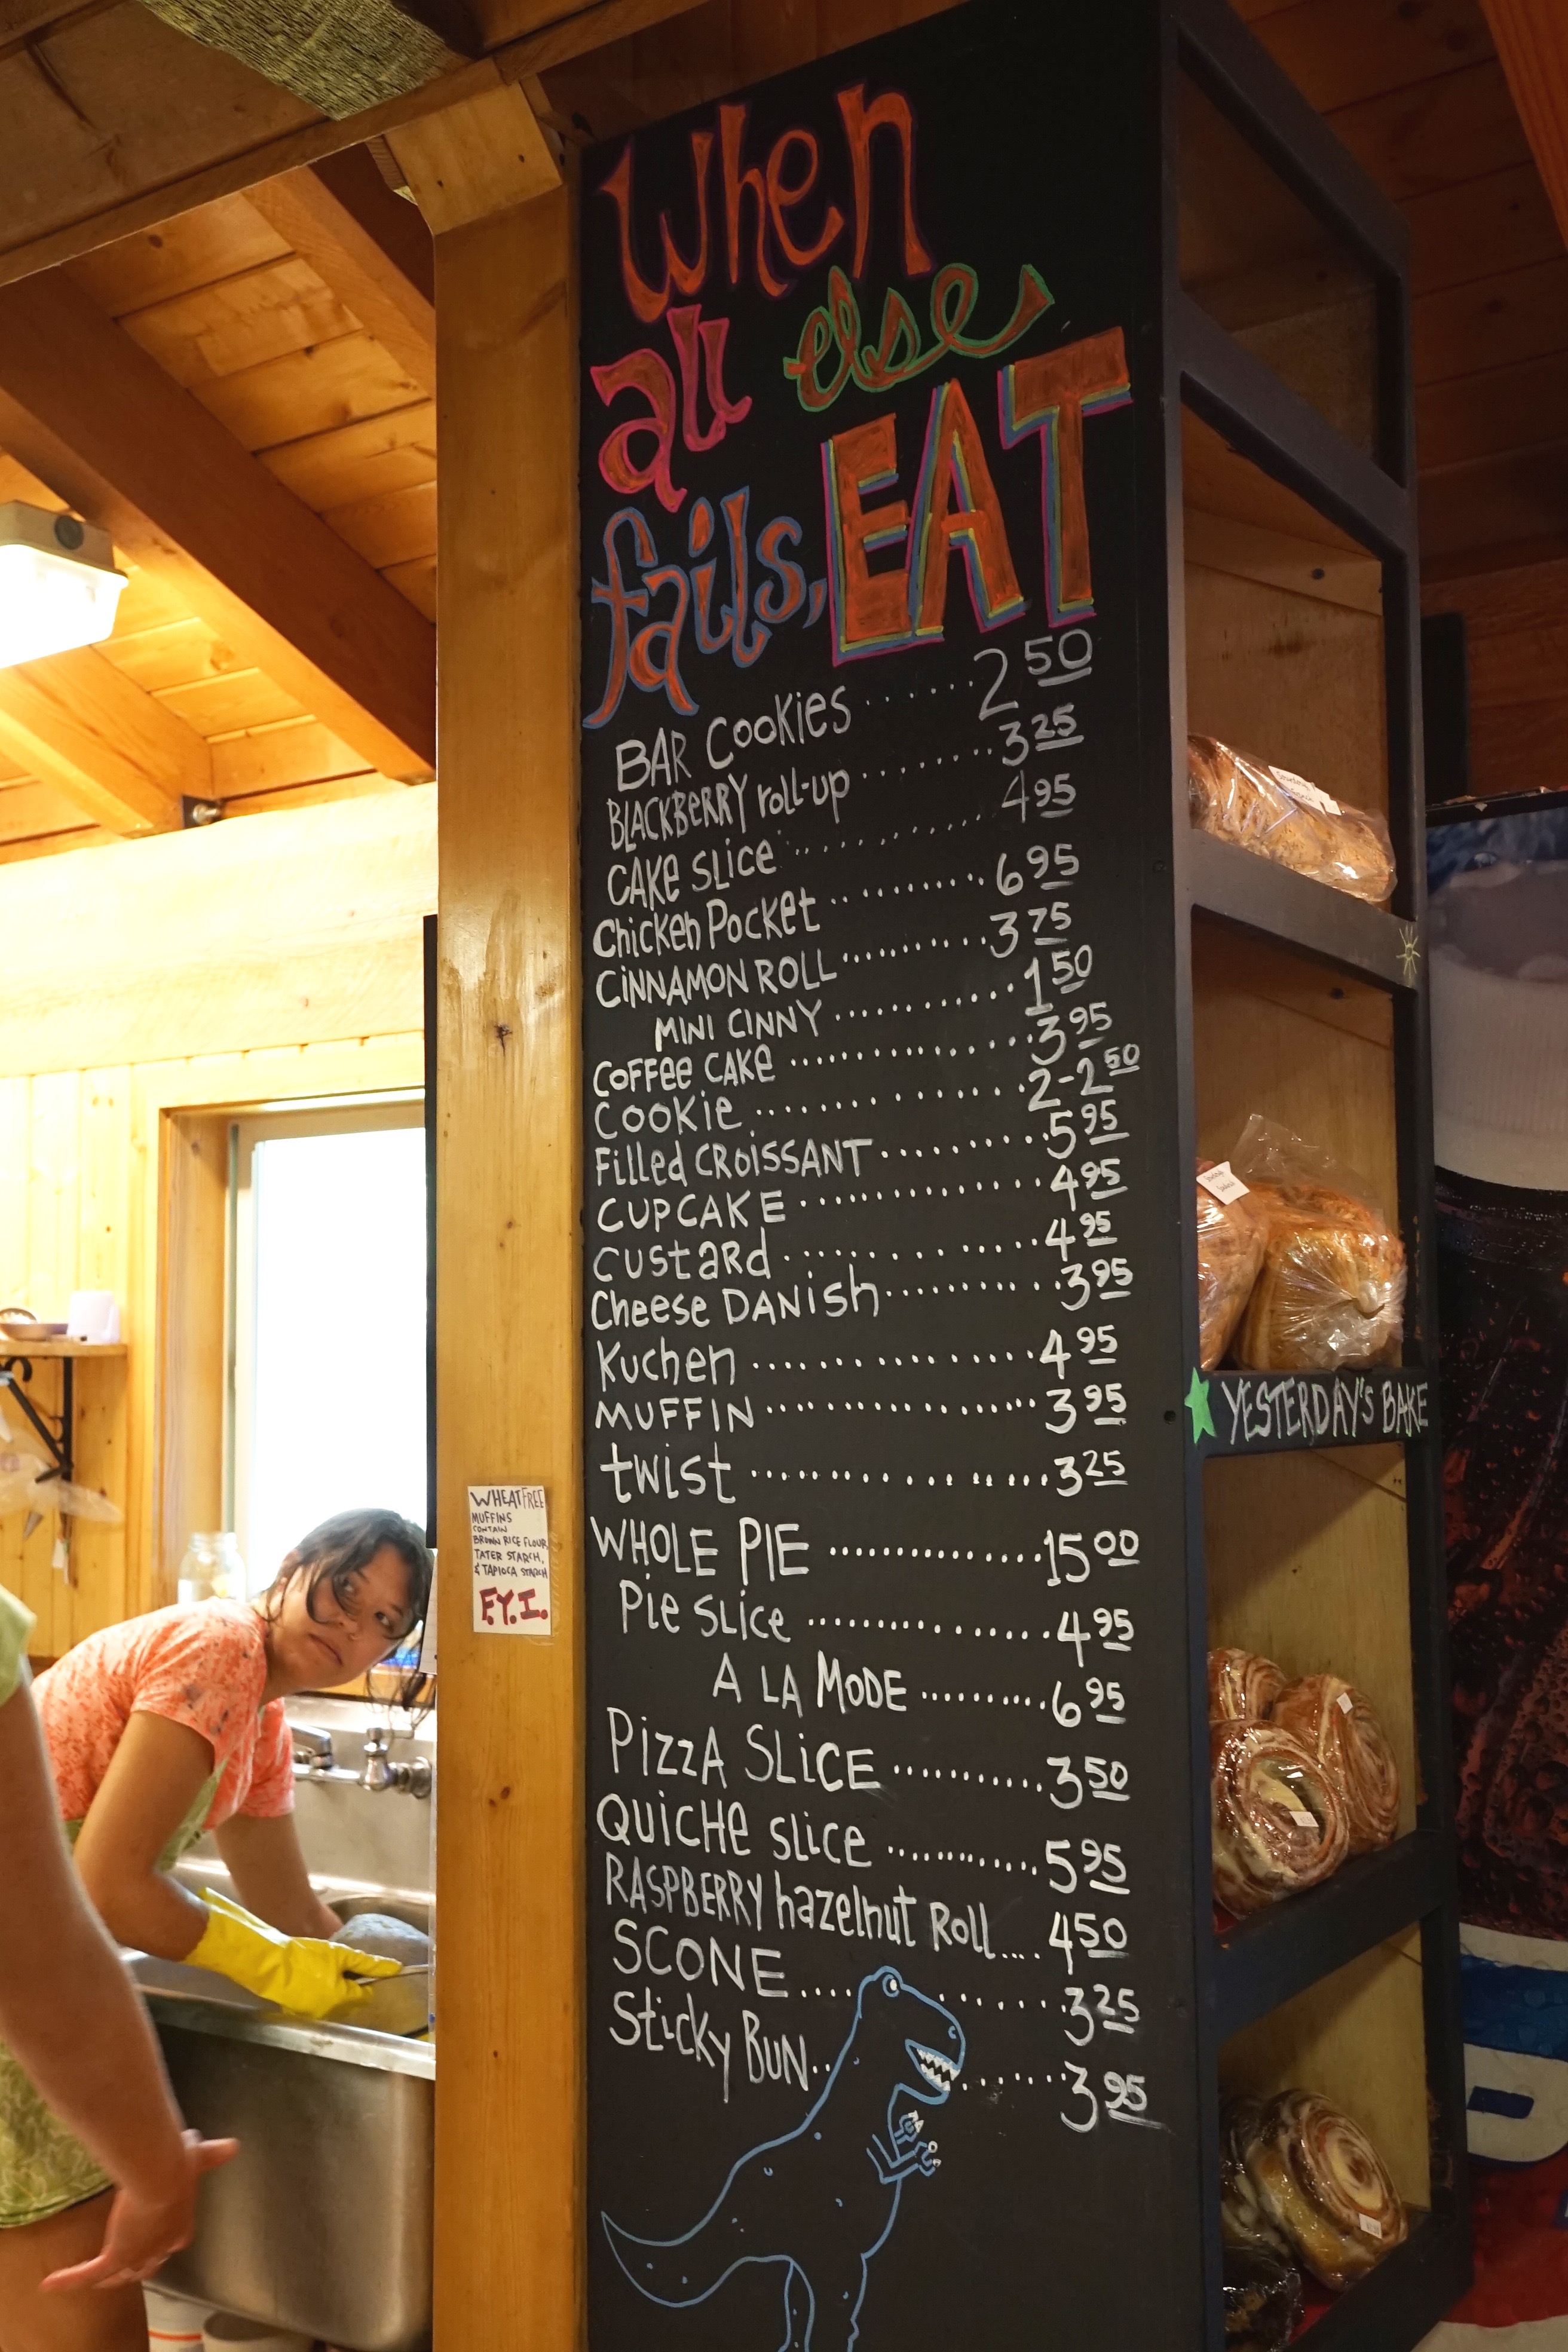 When
all else
fails, EAT
BAR COOKIES ....... 2 50
BLACKBERRY roll-up ........ 3 25
CAKE SLICE .............. 4 95
Chicken Pocket .......... 6 95
CINNAMON ROLL .......... 3 75
MINI CINNY ........... 1 50
COFFEE CAKE ................ 3 95
COOKIE ................ 2-2 50
Filled CROISSANT ......... 5 95
CUPCAKE ............... 4 95
custard ............... 4 95
Cheese DANish ............ 3 95
Kuchen ................ 4 95
MUFFIN .................. 3 95
twist ................ 3 25
WHOLE PIE .................. 15 00
Pie slice ................ 4 95
A LA MODE .......... 6 95
PizzA SLiCE ........... 3 50
QUICHE slice ............ 5 95
RASPBERRY hazelnut Roll .... 4 50
SCONE .......... 3 25
Sticky BUN ........ 3 95
WHEAT FREE
MUFFINS
CONTAIN
BROWN RICE FLOUR,
TATER STARCH,
& TAPIOCA STARCH
F.Y.I.
YESTERDAY'S BAKE